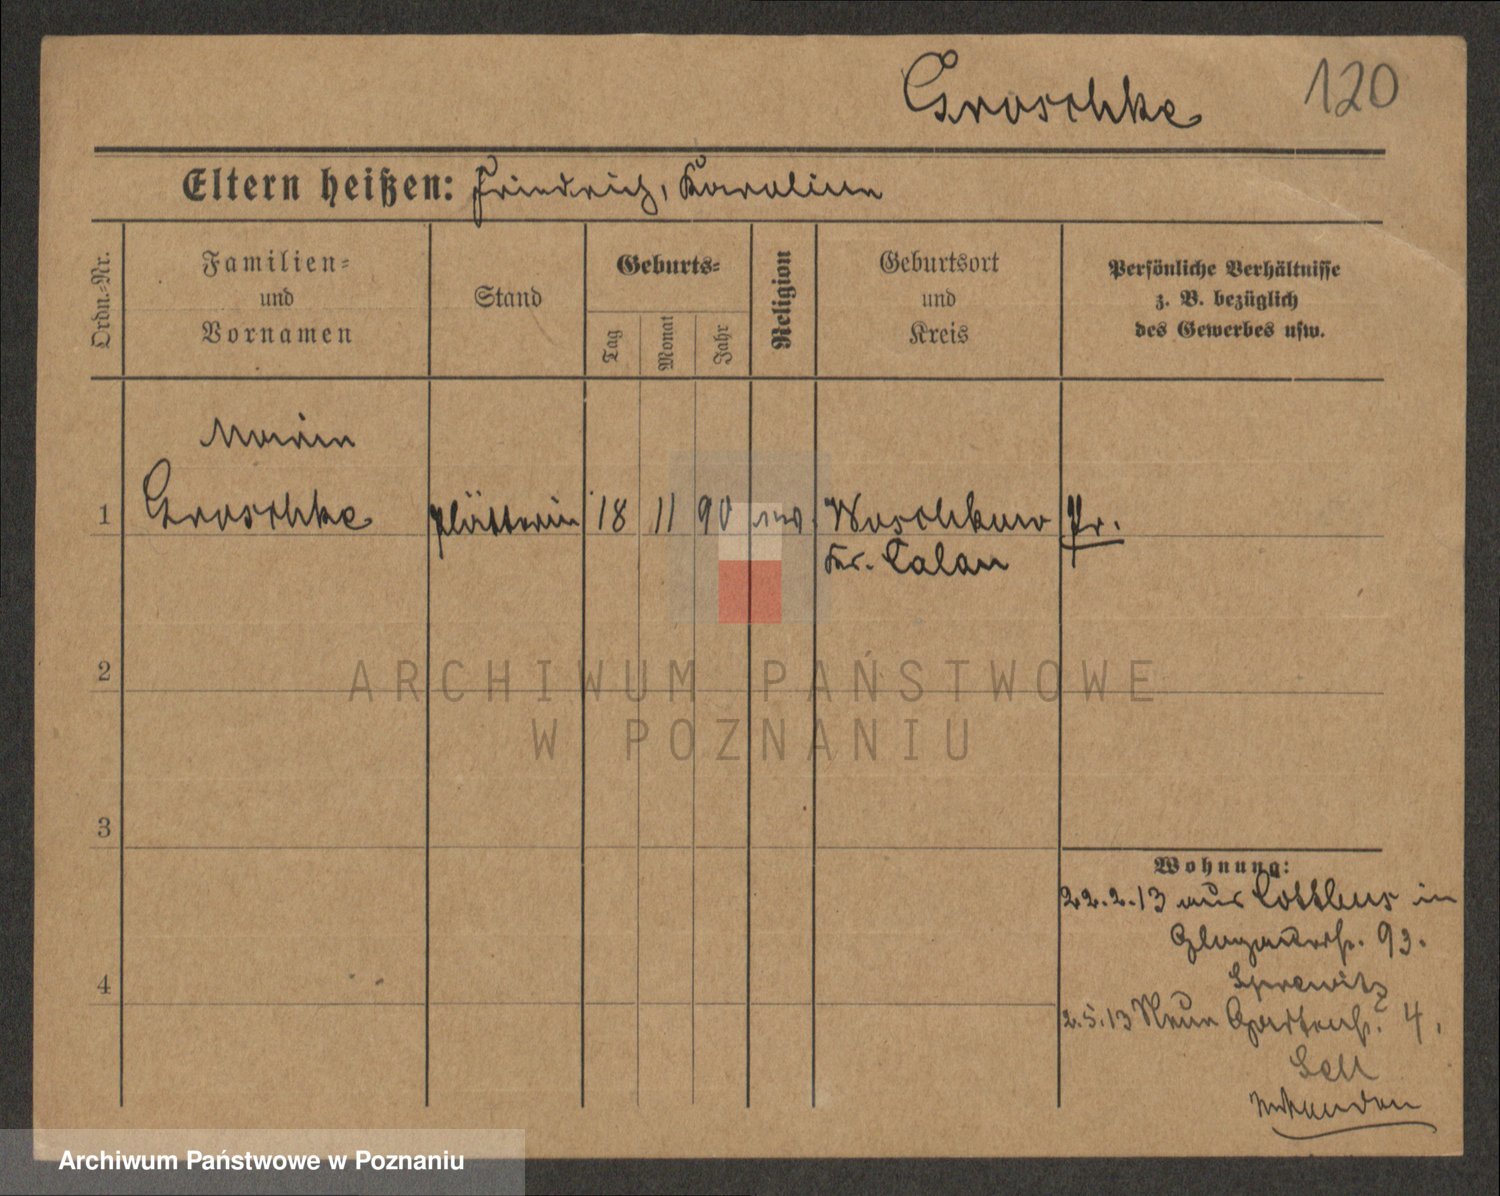 Groschke 120
Eltern heißen: Friedrich, Karoline
Ordn.-Nr.
Familien-
und
Vornamen
Stand
Geburts-
Tag
Monat
Jahr
Religion
Geburtsort
und
Kreis
Persönliche Verhältnisse
z. B. bezüglich
des Gewerbes usw.
Marie
1 Groschke Plätterin 18 11 90 Woschkow Pr.
Kr. Calau
2
3
4
Wohnung:
22.2.13 aus Cottbus in
Glogauerstr. 93.
2.5.13 Neue Gartenstr. 4.
Sell
ARCHIWUM PAŃSTWOWE
W POZNANIU
Archiwum Państwowe w Poznaniu